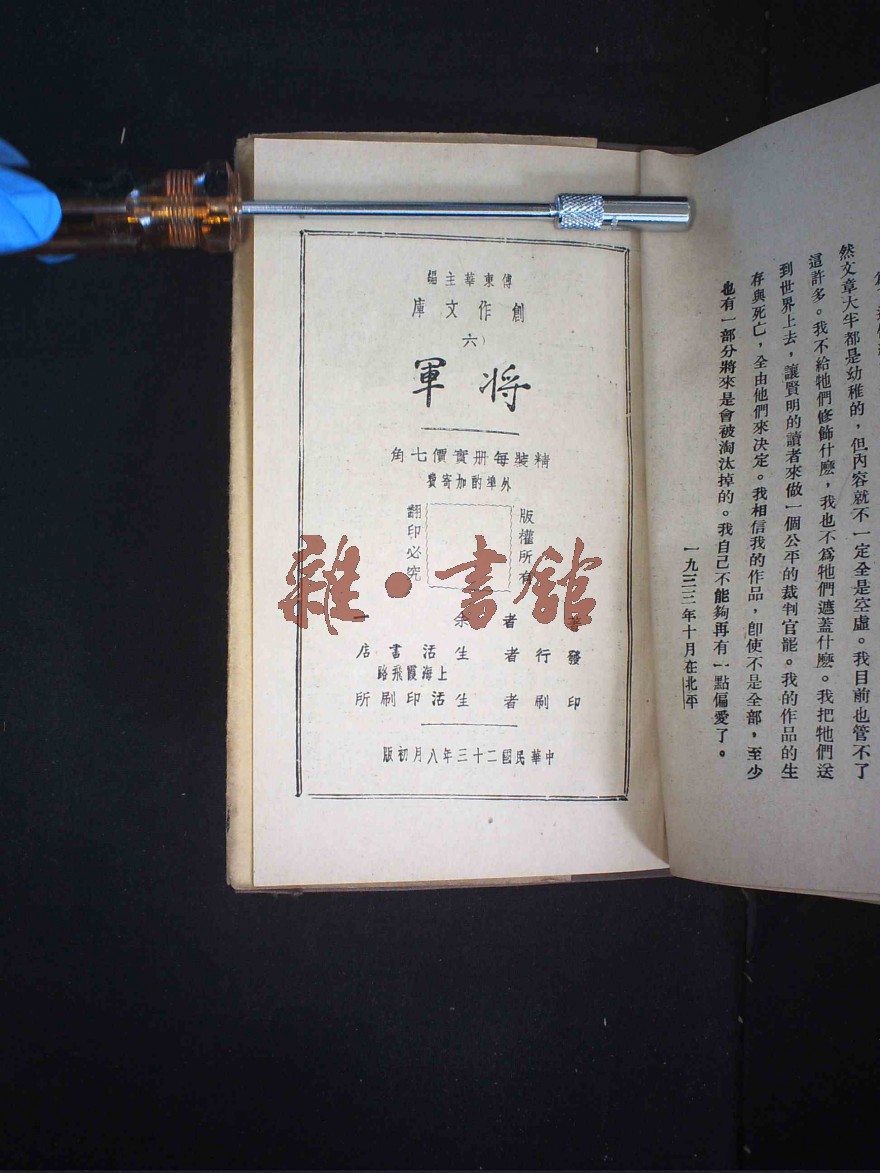 然文章大半都是幼稚的，但內容就不一定全是空虛。我目前也管不了
這許多。我不給牠們修飾什麼，我也不爲牠們遮蓋什麼。我把牠們送
到世界上去，讓賢明的讀者來做一個公平的裁判官罷。我的作品的生
存與死亡，全由他們來决定。我相信我的作品，卽使不是全部，至少
也有一部分將來是會被淘汰掉的。我自己不能夠再有一點偏愛了。
一九三三年十月在北平
傅東華主編
創作文庫
（六）
將軍
精裝每册實價七角
外埠酌加寄費
版權所有
翻印必究
雜·書館
著者 余一
發行者 生活書店
上海霞飛路
印刷者 生活印刷所
中華民國二十三年八月初版